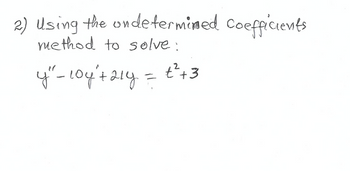 2) Using the undetermined Coefficients
method to solve:
y"-10y'+21y = t²+3